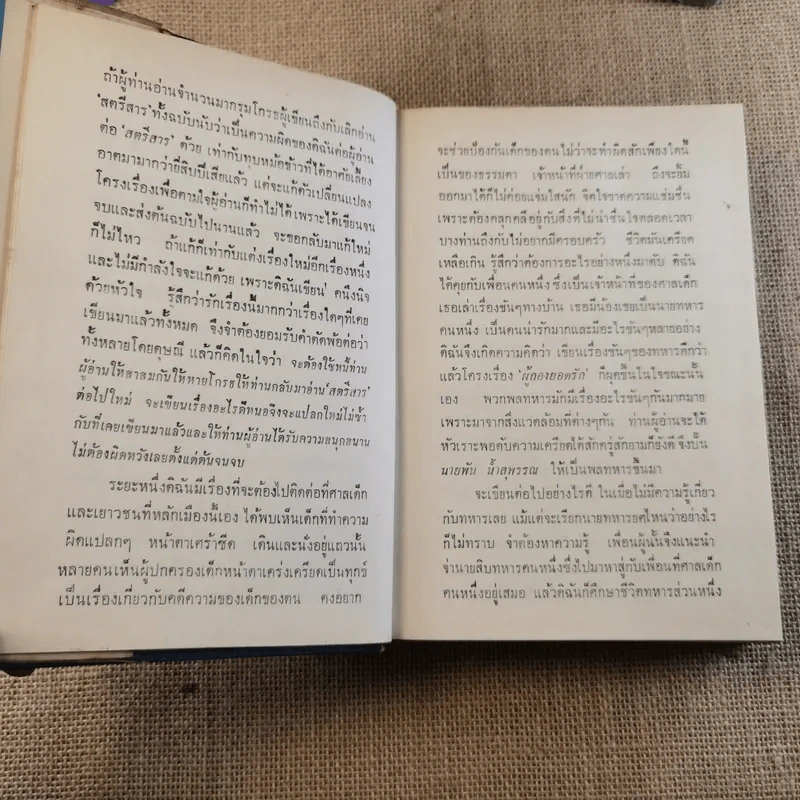 ถ้าผู้ท่านอ่านจำนวนมากรุมโกรธผู้เขียนถึงกับเลิกอ่าน
'สตรีสาร' ทั้งฉบับนับว่าเป็นความผิดของดิฉันต่อผู้อ่าน
ต่อ 'สตรีสาร' ด้วย เท่ากับทุบหม้อข้าวที่ได้อาศัยเลี้ยง
อาตมามากว่ายี่สิบปีเสียแล้ว แต่จะแก้ตัวเปลี่ยนแปลง
โครงเรื่องเพื่อตามใจผู้อ่านก็ทำไม่ได้ เพราะได้เขียนจน
จบและส่งต้นฉบับไปนานแล้ว จะขอกลับมาแก้ใหม่
ก็ไม่ไหว ถ้าแก้ก็เท่ากับแต่งเรื่องใหม่อีกเรื่องหนึ่ง
และไม่มีกำลังใจจะแก้ด้วย เพราะดิฉันเขียน คนึงนิจ
ด้วยหัวใจ รู้สึกว่ารักเรื่องนี้มากกว่าเรื่องใดๆที่เคย
เขียนมาแล้วทั้งหมด จึงจำต้องยอมรับคำตัดพ้อต่อว่า
ทั้งหลายโดยดุษณี แล้วก็คิดในใจว่า จะต้องใช้หนี้ท่าน
ผู้อ่านให้สาสมกันให้หายโกรธให้ท่านกลับมาอ่าน 'สตรีสาร'
ต่อไปใหม่ จะเขียนเรื่องอะไรดีหนอจึงจะแปลกใหม่ไม่ซ้ำ
กับที่เคยเขียนมาแล้วและให้ท่านผู้อ่านได้รับความสนุกสนาน
ไม่ต้องผิดหวังเลยตั้งแต่ต้นจนจบ
ระยะหนึ่งดิฉันมีเรื่องที่จะต้องไปติดต่อที่ศาลเด็ก
และเยาวชนที่หลักเมืองนี้เอง ได้พบเห็นเด็กที่ทำความ
ผิดแปลกๆ หน้าตาเศร้าซีด เดินและนั่งอยู่แถวนั้น
หลายคนเห็นผู้ปกครองเด็กหน้าตาเคร่งเครียดเป็นทุกข์
เป็นเรื่องเกี่ยวกับคดีความของเด็กของตน คงอยาก
จะช่วยป้องกันเด็กของตนไม่ว่าจะทำผิดสักเพียงใดนี้
เป็นของธรรมดา เจ้าหน้าที่ฝ่ายศาลเล่า ถึงจะยิ้ม
ออกมาได้ก็ไม่ค่อยแจ่มใสนัก จิตใจขาดความแช่มชื่น
เพราะต้องคลุกคลีอยู่กับสิ่งที่ไม่น่าชื่นใจตลอดเวลา
บางท่านถึงกับไม่อยากมีครอบครัว ชีวิตมันเครียด
เหลือเกิน รู้สึกว่าต้องการอะไรอย่างหนึ่งมาดับ ดิฉัน
ได้คุยกับเพื่อนคนหนึ่ง ซึ่งเป็นเจ้าหน้าที่ของศาลเด็ก
เธอเล่าเรื่องขันๆทางบ้าน เธอมีน้องเขยเป็นนายทหาร
คนหนึ่ง เป็นคนน่ารักมากและมีอะไรขันๆหลายอย่าง
ดิฉันจึงเกิดความคิดว่า เขียนเรื่องขันๆของทหารดีกว่า
แล้วโครงเรื่อง 'ผู้กองยอดรัก' ก็ผุดขึ้นในใจขณะนั้น
เอง พวกพลทหารมักมีเรื่องอะไรขันๆกันมากมาย
เพราะมาจากสิ่งแวดล้อมที่ต่างๆกัน ท่านผู้อ่านจะได้
หัวเราะพอดับความเครียดได้สักครู่สักยามก็ยังดี จึงปั้น
นายพัน น้ำสุพรรณ ให้เป็นพลทหารขึ้นมา
จะเขียนต่อไปอย่างไรดี ในเมื่อไม่มีความรู้เกี่ยว
กับทหารเลย แม้แต่จะเรียกนายทหารยศไหนว่าอย่างไร
ก็ไม่ทราบ จำต้องหาความรู้ เพื่อนผู้นั้นจึงแนะนำ
จ่านายสิบทหารคนหนึ่งซึ่งไปมาหาสู่กับเพื่อนที่ศาลเด็ก
คนหนึ่งอยู่เสมอ แล้วดิฉันก็ศึกษาชีวิตทหารส่วนหนึ่ง